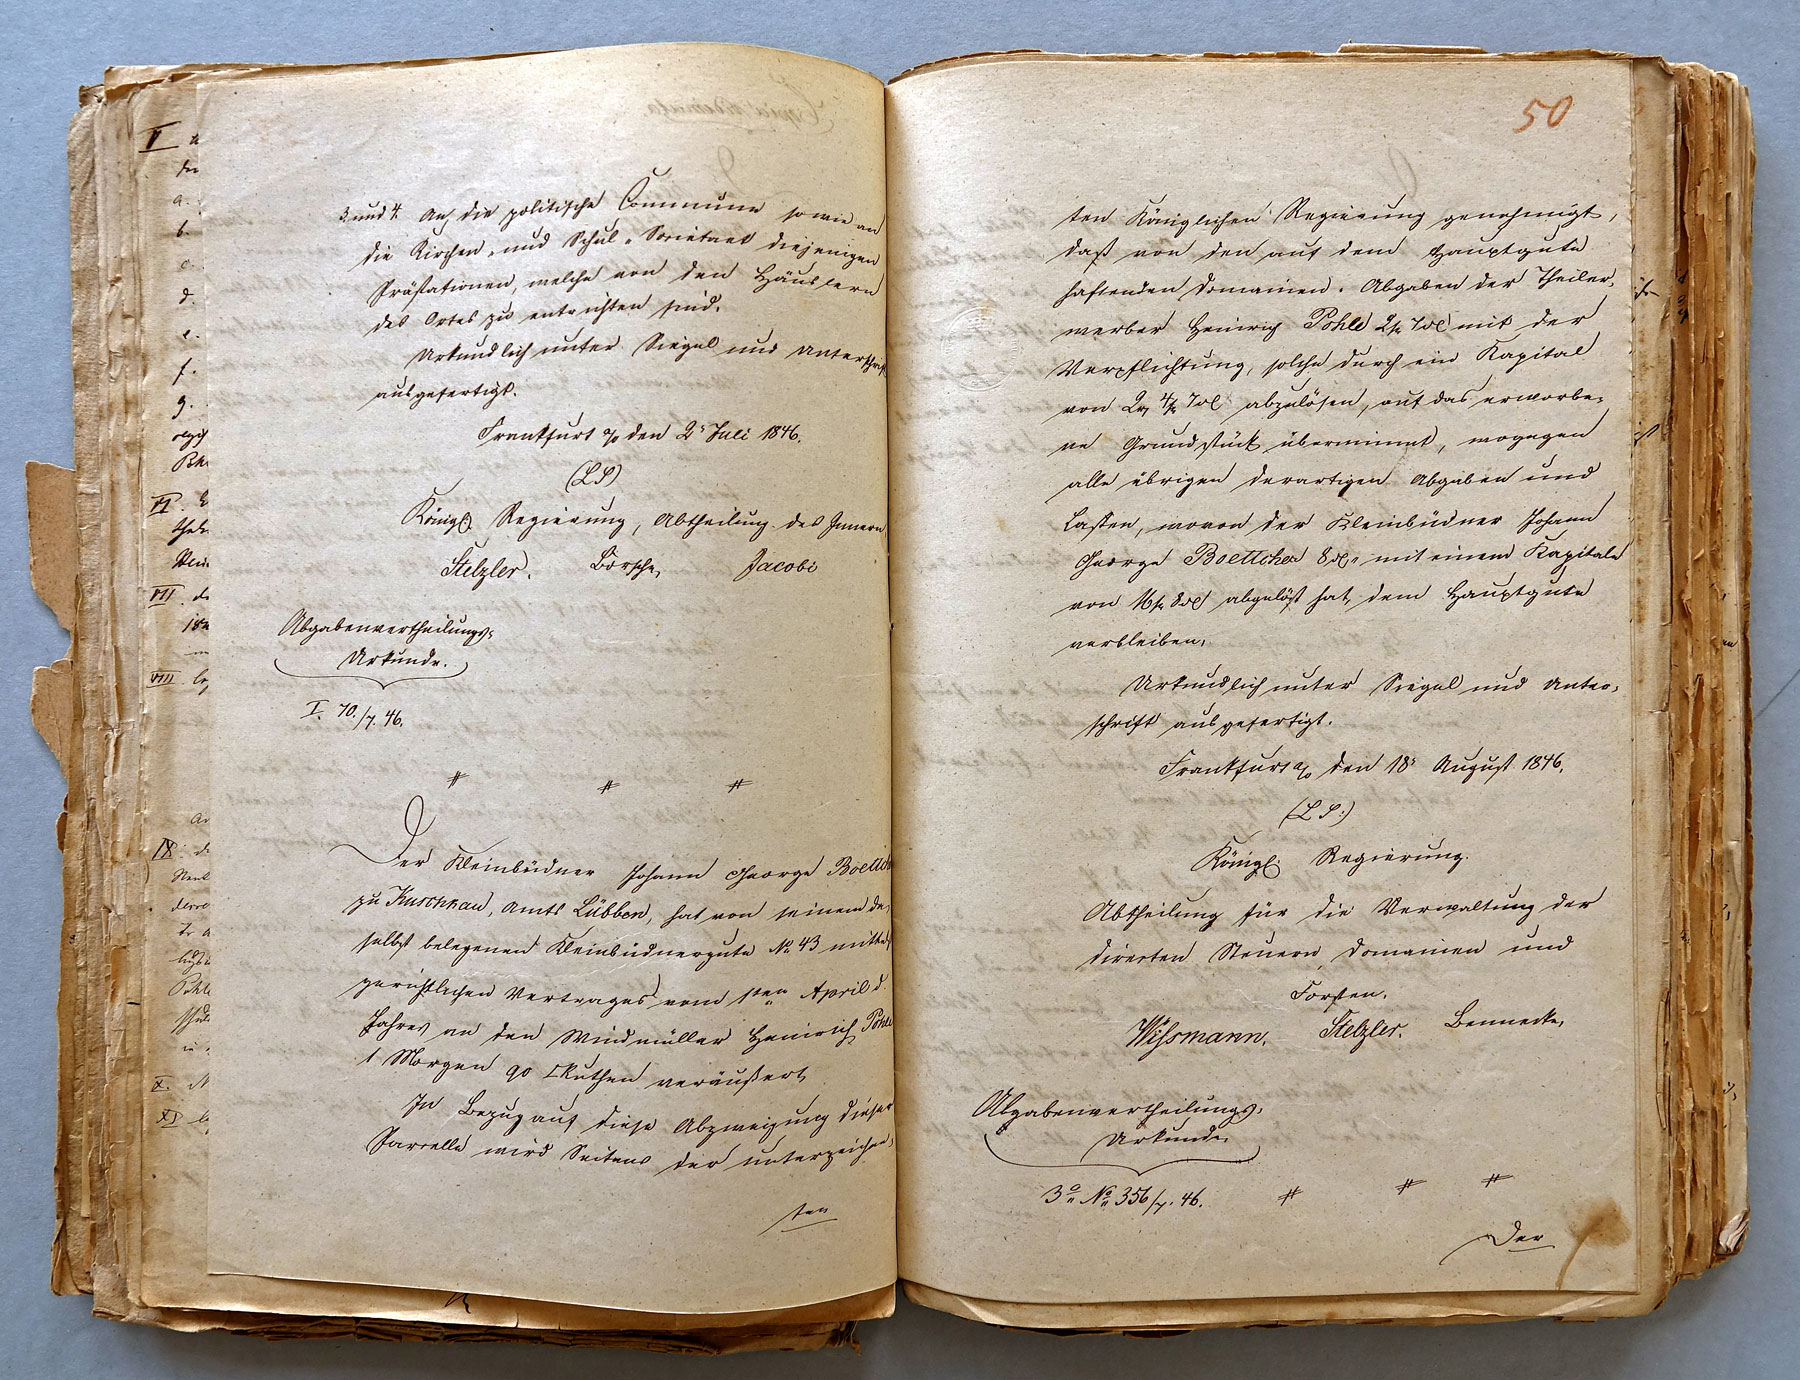 3. und 4. An die politische Commune sowie an
die Kirchen- und Schul-Societaet diejenigen
Prästationen, welche von den Häuslern
des Ortes zu entrichten sind.
Urkundlich unter Siegel und Unterschrift
ausgefertigt.
Frankfurt a/o den 2t Juli 1846.
(L.S)
Königl: Regierung, Abtheilung des Innern
Stelzler. Borsche, Jacobi
Abgabenvertheilungs-
Urkunde.
I. 70./7. 46.
Der Kleinbüdner Johann George Boettcher
zu Kuschkau, Amts Lübben, hat von seinem da-
selbst belegenen Kleinbüdnergute No 43 mittelst
gerichtlichen Vertrages vom 1ten April d.
Jahres an den Windmüller Heinrich Pohle
1 Morgen 90 □Ruthen veräußert,
In Bezug auf diese Abzweigung dieser
Parcelle wird Seitens der unterzeichne-
ten
50
ten Königlichen Regierung genehmigt,
daß von den auf dem Hauptgute
haftenden Domainen-Abgaben der Theiler-
werber Heinrich Pohle mit der
Verpflichtung, solche durch ein Kapital
von abzulösen, auf das erworbe-
ne Grundstück übernimmt, wogegen
alle übrigen derartigen Abgaben und
Lasten, wovon der Kleinbüdner Johann
George Boettcher mit einem Kapitale
von abgelöst hat, dem Hauptgute
verbleiben.
Urkundlich unter Siegel und Unter-
schrift ausgefertigt.
Frankfurt a/o den 18t August 1846.
(L.S:)
Königl: Regierung.
Abtheilung für die Verwaltung der
directen Steuern, Domainen und
Forsten.
Wißmann. Stelzler. Bennecke,
Abgabenvertheilungs-
Urkunde
3o No 356/7. 46.
Der
V
a.
b.
c.
d.
e.
f.
g.
VI
VII
VIII
IX
X.
XI